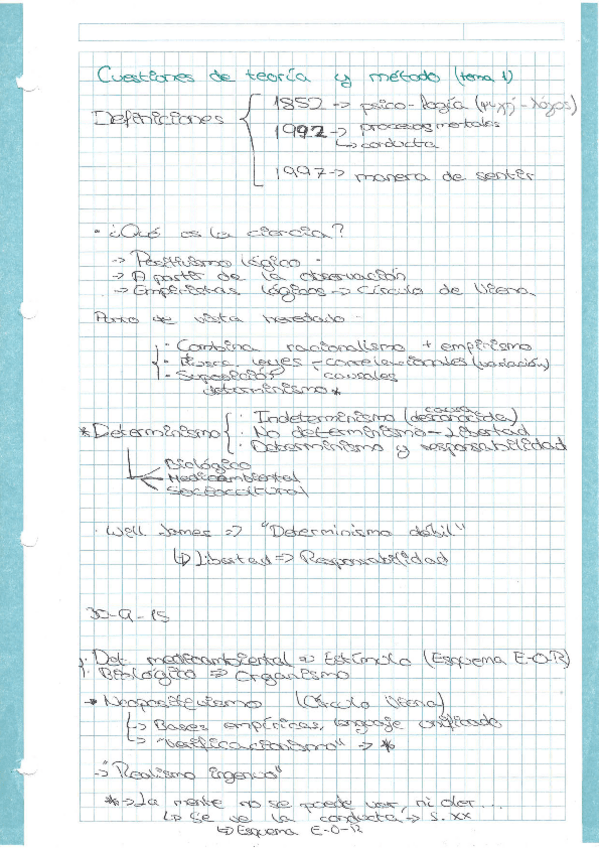 Cuestiones de teoría y método (tema 1)
Definiciones
1852 -> psico-logía (ψυχή-λόγos)
1992 -> procesos mentales
↳ conducta
1997 -> manera de sentir
• ¿Qué es la ciencia?
-> Positivismo lógico -
-> A partir de la observación
-> Empiristas lógicos -> Círculo de Viena
Punto de vista heredado -
- Combina racionalismo + empirismo
- Busca leyes - correlacionales (variación)
- Suposición causales
determinismo *
* Determinismo
· Indeterminismo (causa desconocida)
· No determinismo - Libertad
· Determinismo y responsabilidad
Biológico
Medioambiental
Sociocultural
· Well. James => "Determinismo débil"
↳ Libertad => Responsabilidad
30-9-15
· Det. medioambiental => Estímulo (Esquema E-O-R)
· Biológico => Organismo
-> Neopositivismo (Círculo Viena)
-> Bases empíricas, lenguaje unificado
-> "Verificacionismo" -> *
-> "Realismo ingenuo"
* -> La mente no se puede ver, ni oler...
↳ Se ve la conducta -> S. XX
↳ Esquema E-O-R